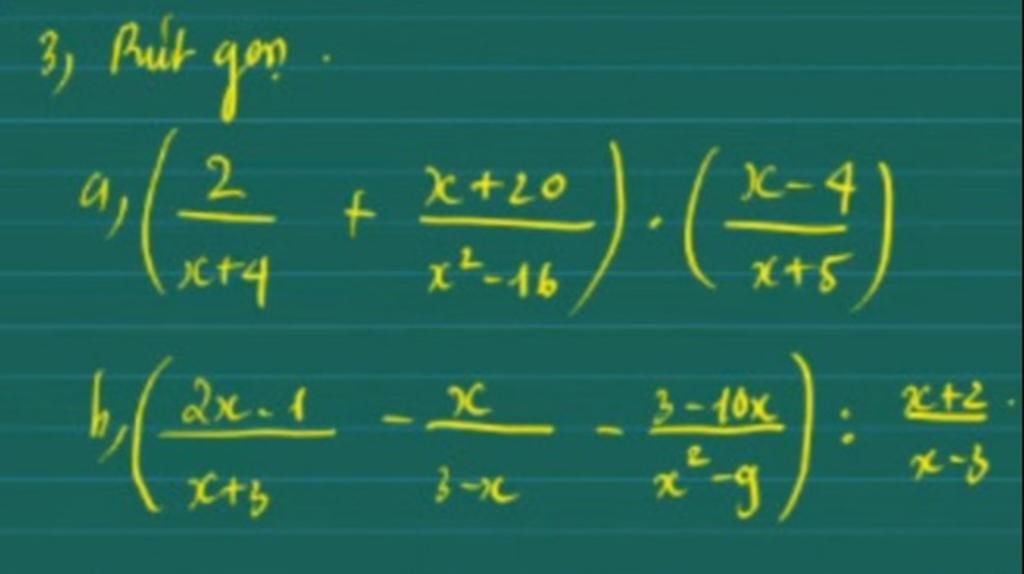 3, Rút gọn.
a, (2/(x+4) + (x+20)/(x²-16)) . ((x-4)/(x+5))
b, ((2x-1)/(x+3) - x/(3-x) - (3-10x)/(x²-9)) : (x+2)/(x-3).